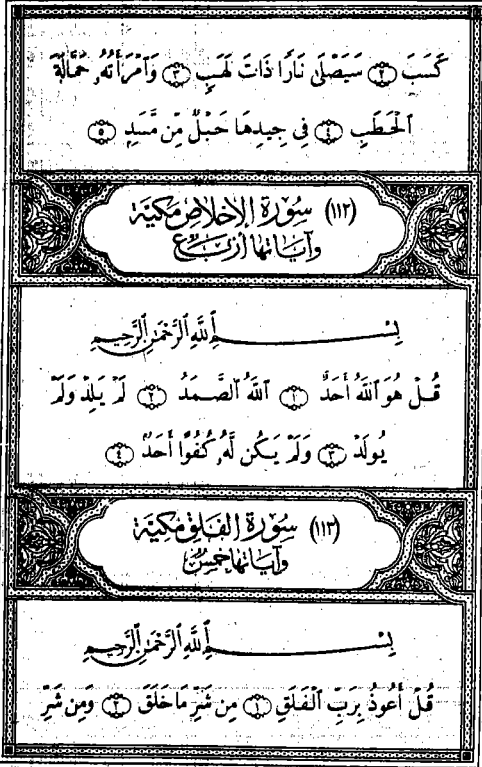 كَسَبَ ٢ سَيَصْلَىٰ نَارًا ذَاتَ لَهَبٍ ٣ وَٱمْرَأَتُهُۥ حَمَّالَةَ
ٱلْحَطَبِ ٤ فِى جِيدِهَا حَبْلٌ مِّن مَّسَدٍ ٥
(١١٢) سُورَةُ الإِخْلَاصِ مَكِيَّة
وَآيَاتُهَا أَرْبَعٌ
بِسْمِ ٱللَّهِ ٱلرَّحْمَٰنِ ٱلرَّحِيمِ
قُلْ هُوَ ٱللَّهُ أَحَدٌ ١ ٱللَّهُ ٱلصَّمَدُ ٢ لَمْ يَلِدْ وَلَمْ
يُولَدْ ٣ وَلَمْ يَكُن لَّهُۥ كُفُوًا أَحَدٌ ٤
(١١٣) سُورَةُ الفَلَقِ مَكِيَّة
وَآيَاتُهَا خَمْسٌ
بِسْمِ ٱللَّهِ ٱلرَّحْمَٰنِ ٱلرَّحِيمِ
قُلْ أَعُوذُ بِرَبِّ ٱلْفَلَقِ ١ مِن شَرِّ مَا خَلَقَ ٢ وَمِن شَرِّ